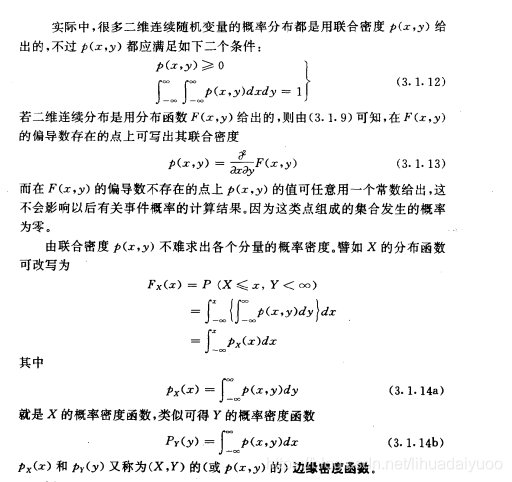 实际中,很多二维连续随机变量的概率分布都是用联合密度 p(x,y) 给
出的,不过 p(x,y) 都应满足如下二个条件:
p(x,y) ⩾ 0
∫_{-∞}^{∞} ∫_{-∞}^{∞} p(x,y)dxdy = 1 } (3.1.12)
若二维连续分布是用分布函数 F(x,y) 给出的,则由(3.1.9)可知,在 F(x,y)
的偏导数存在的点上可写出其联合密度
p(x,y) = ∂²/∂x∂y F(x,y) (3.1.13)
而在 F(x,y) 的偏导数不存在的点上 p(x,y) 的值可任意用一个常数给出,这
不会影响以后有关事件概率的计算结果。因为这类点组成的集合发生的概率
为零。
由联合密度 p(x,y) 不难求出各个分量的概率密度。譬如 X 的分布函数
可改写为
F_X(x) = P (X ⩽ x, Y < ∞)
= ∫_{-∞}^{x} {∫_{-∞}^{∞} p(x,y)dy}dx
= ∫_{-∞}^{x} p_X(x)dx
其中
p_X(x) = ∫_{-∞}^{∞} p(x,y)dy (3.1.14a)
就是 X 的概率密度函数,类似可得 Y 的概率密度函数
P_Y(y) = ∫_{-∞}^{∞} p(x,y)dx (3.1.14b)
p_X(x) 和 p_Y(y) 又称为(X,Y) 的(或 p(x,y) 的)边缘密度函数。